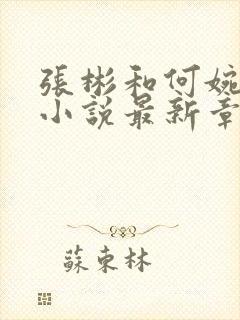 張彬和何婉
小説最新章
蘇東林